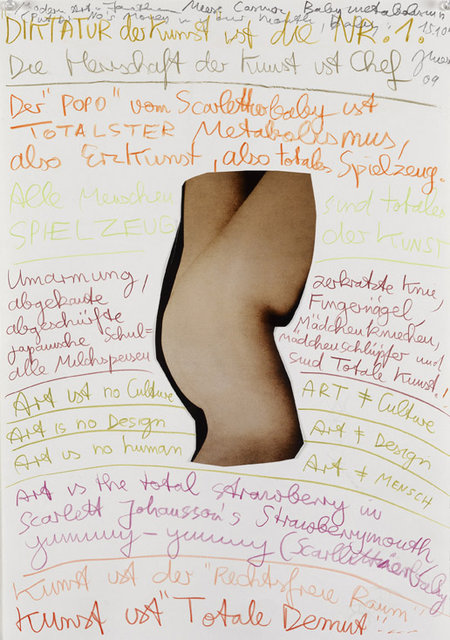 "Modern Art" Jonathan Meese Casmor, Babymetabolism
(Putting No's Money in your mouth Baby) 15104
DIKTATUR der Kunst ist die "NR. 1".
Die Herrschaft der Kunst ist Chef
09
Der "POPO" vom Scarlettierbaby ist
TOTALSTER Metabolismus,
also Erzkunst, also totales Spielzeug.
Alle Menschen sind totales
SPIELZEUG der KUNST
Umarmung,
abgekaute
abgeschürfte
japanische Schul=
alle Milchspeisen
zerkratzte Knie,
Fingernägel,
Mädchenknochen,
Mädchenschlüpfer und
sind Totale Kunst.!
Art ist no Culture
Art is no Design
Art us no human
ART ≠ Culture
Art ≠ Design
Art ≠ MENSCH
Art is the total strawberry in
Scarlett Johansson's Strawberrymouth
yummy-yummy (Scarlettierbaby
Kunst ist der "Rechtsfreie Raum"
Kunst ist "Totale Demut"